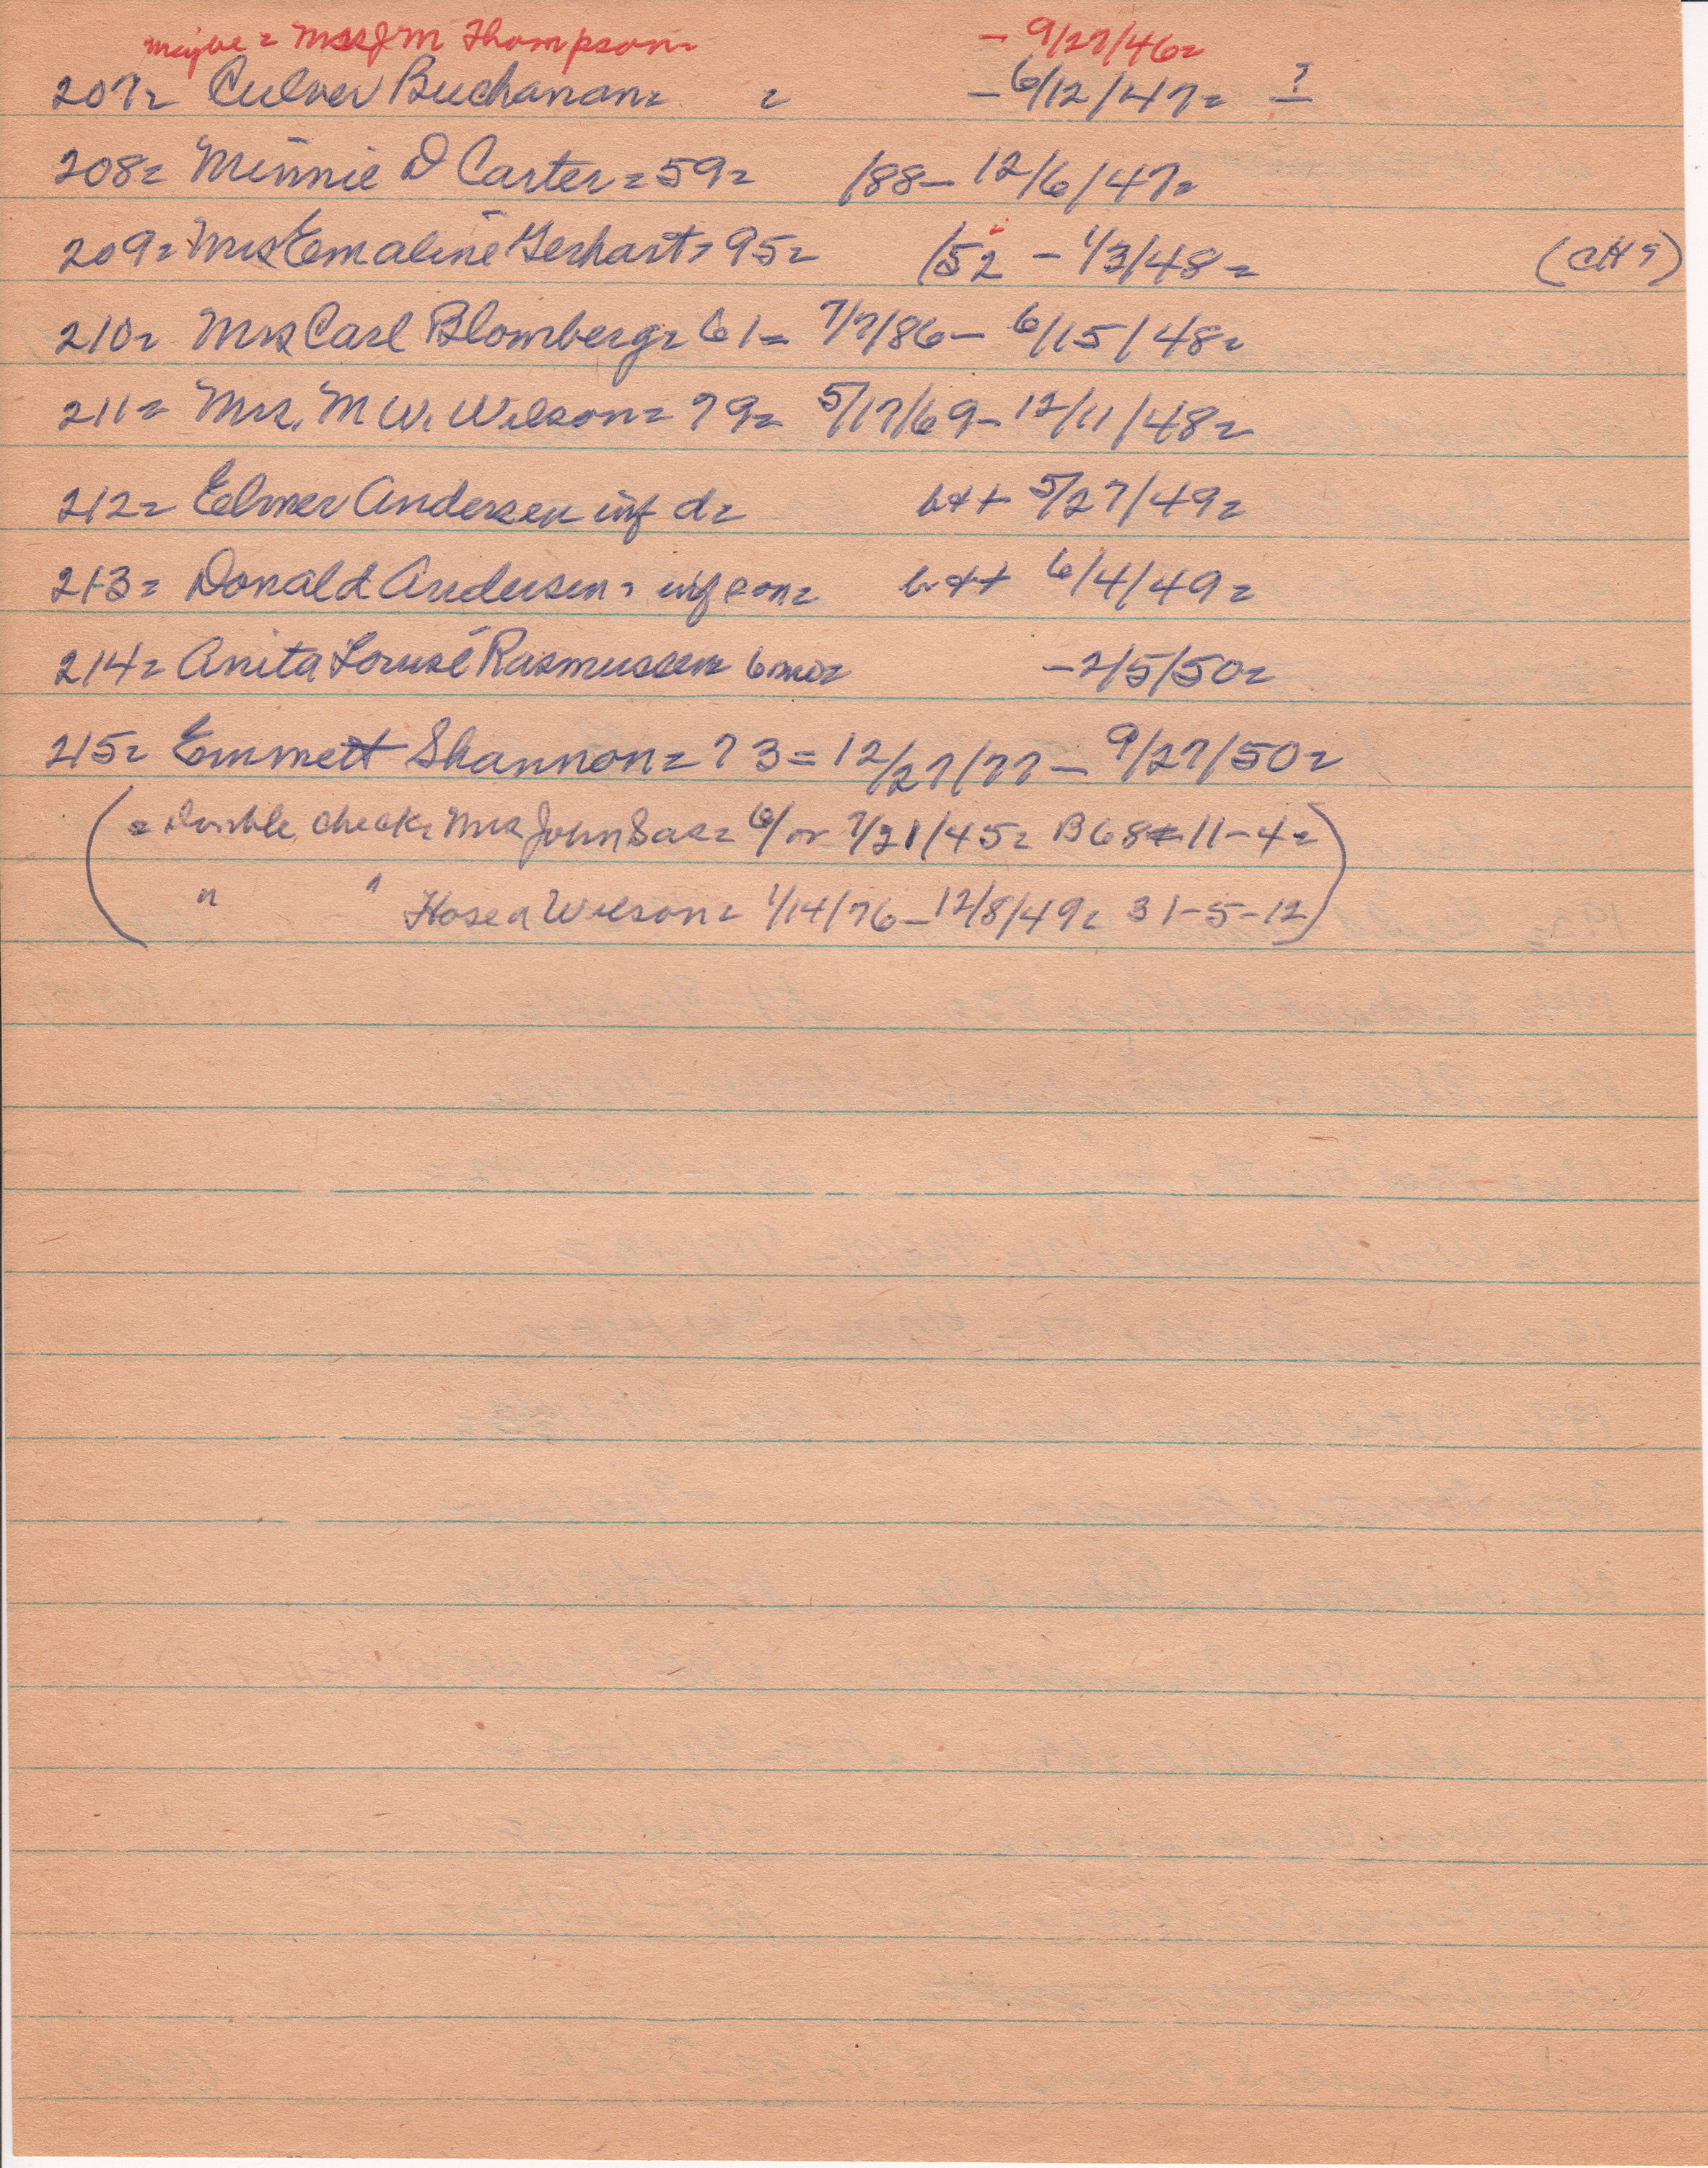 maybe = Mrs J M Thompson= - 9/27/46=
207= Culver Buchanan= = - 6/12/47= ?
208= Minnie D Carter = 59= /88 - 12/6/47=
209= Mrs Emaline Gerhart = 95= /52 - 1/3/48= (CH?)
210= Mrs Carl Blomberg= 61= 7/7/86 - 6/15/48=
211= Mrs. M W. Wilson = 79= 5/17/69 - 12/11/48=
212= Elmer Andersen inf d= b++ 5/27/49=
213= Donald Andersen = inf son= b++ 6/4/49=
214= Anita Louise Rasmussen 6 mo= - 2/5/50=
215= Emmett Shannon = 73 = 12/27/77 - 9/27/50=
(= Double check= Mrs John Sas= 6/ or 7/21/45= B68 = 11-4=
" " Hosea Wilson= 1/14/76 - 12/8/49= 31-5-12)